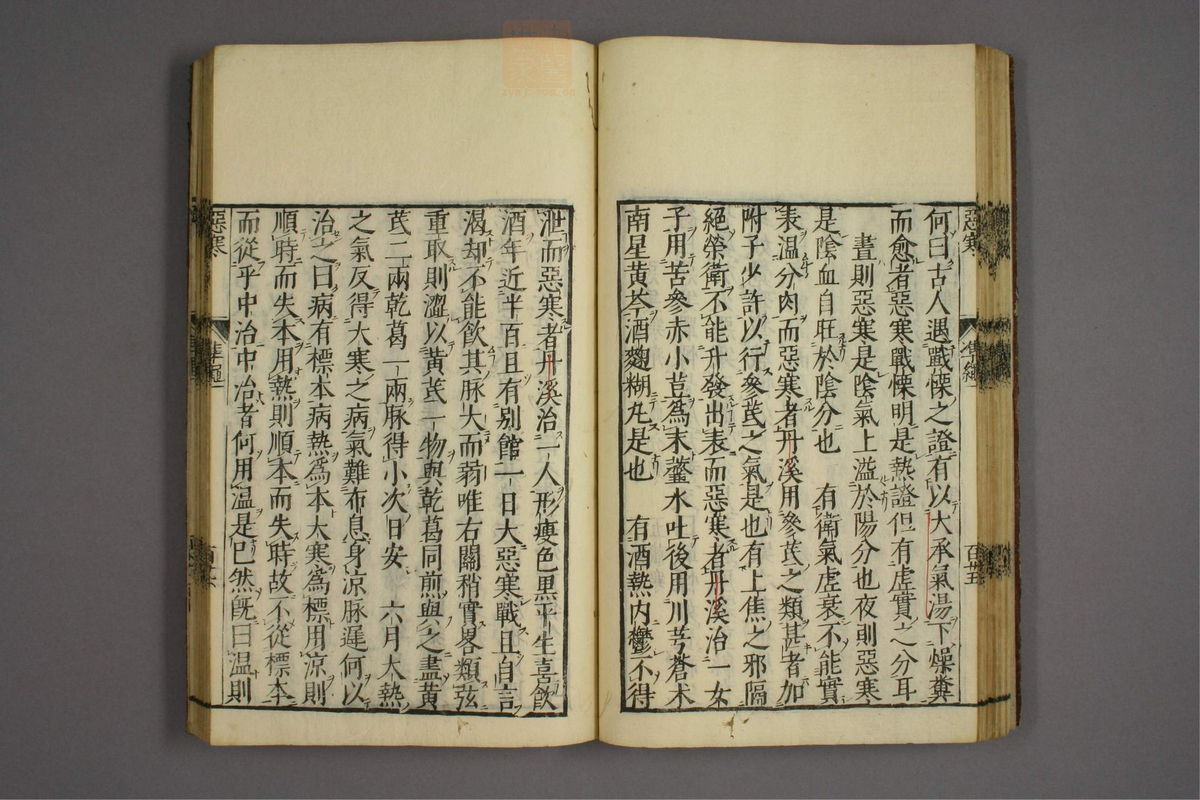 惡寒
準繩
百廿五
何曰古人遇戰慄之證有以大承氣湯下燥糞
而愈者惡寒戰慄明是熱證但有虛實之分耳
晝則惡寒是陰氣上溢於陽分也夜則惡寒
是陰血自旺於陰分也　有衛氣虛衰不能實
表溫分肉而惡寒者丹溪用參芪之類甚者加
附子少許以行參芪之氣是也有上焦之邪隔
絕榮衛不能升發出表而惡寒者丹溪治一女
子用苦參赤小荳爲末虀水吐後用川芎蒼朮
南星黃芩酒麴糊丸是也　有酒熱內鬱不得
泄而惡寒者丹溪治一人形瘦色黑平生喜飮
酒年近半百且有別館一日大惡寒戰且自言
渴却不能飮其脉大而弱唯右關稍實畧類弦
重取則澀以黃芪一物與乾葛同煎與之盡黃
芪二兩乾葛一兩脉得小次日安　六月大熱
之氣反得大寒之病氣難布息身涼脉遲何以
治之曰病有標本病熱爲本大寒爲標用涼則
順時而失本用熱則順本而失時故不從標本
而從乎中治中治者何用溫是已然旣曰溫則
惡寒
準繩